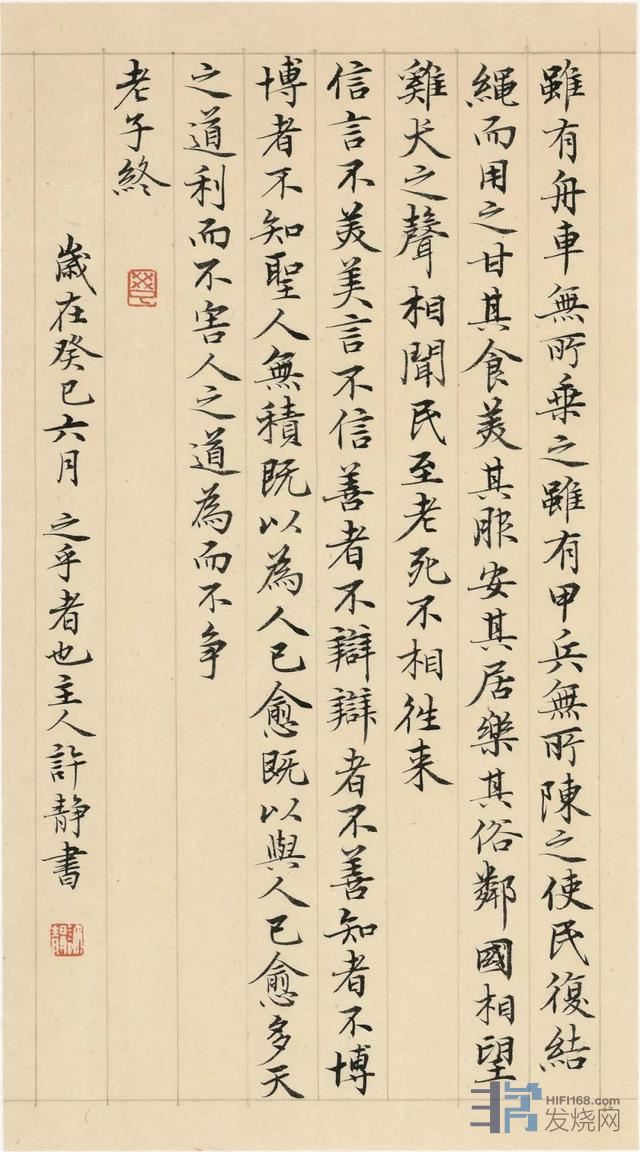 雖有舟車無所乗之雖有甲兵無所陳之使民復結
繩而用之甘其食美其服安其居樂其俗鄰國相望
雞犬之聲相聞民至老死不相往来
信言不美美言不信善者不辯辯者不善知者不博
博者不知聖人無積既以為人己愈既以與人己愈多天
之道利而不害人之道為而不争
老子終
歲在癸巳六月之乎者也主人許静書
HIFI168.com
发烧网